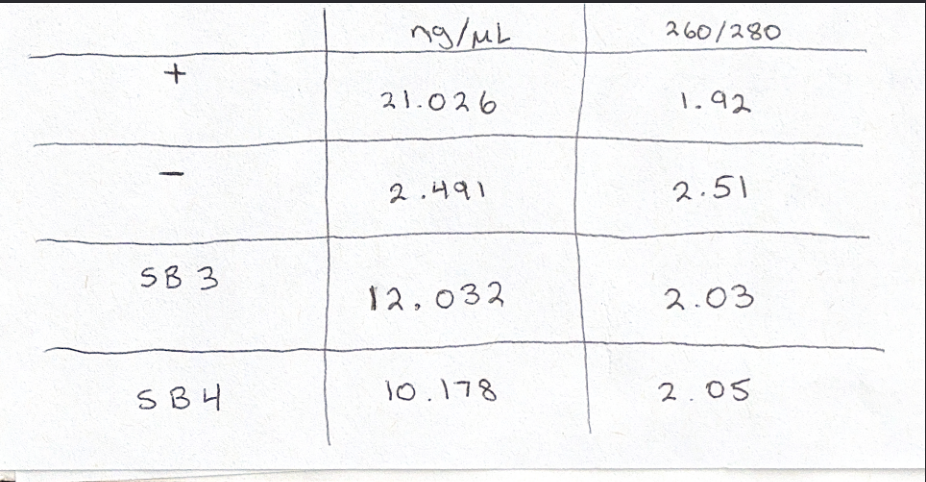 ng/µL 260/280
+ 21.026 1.92
- 2.491 2.51
SB3 12,032 2.03
SB4 10.178 2.05